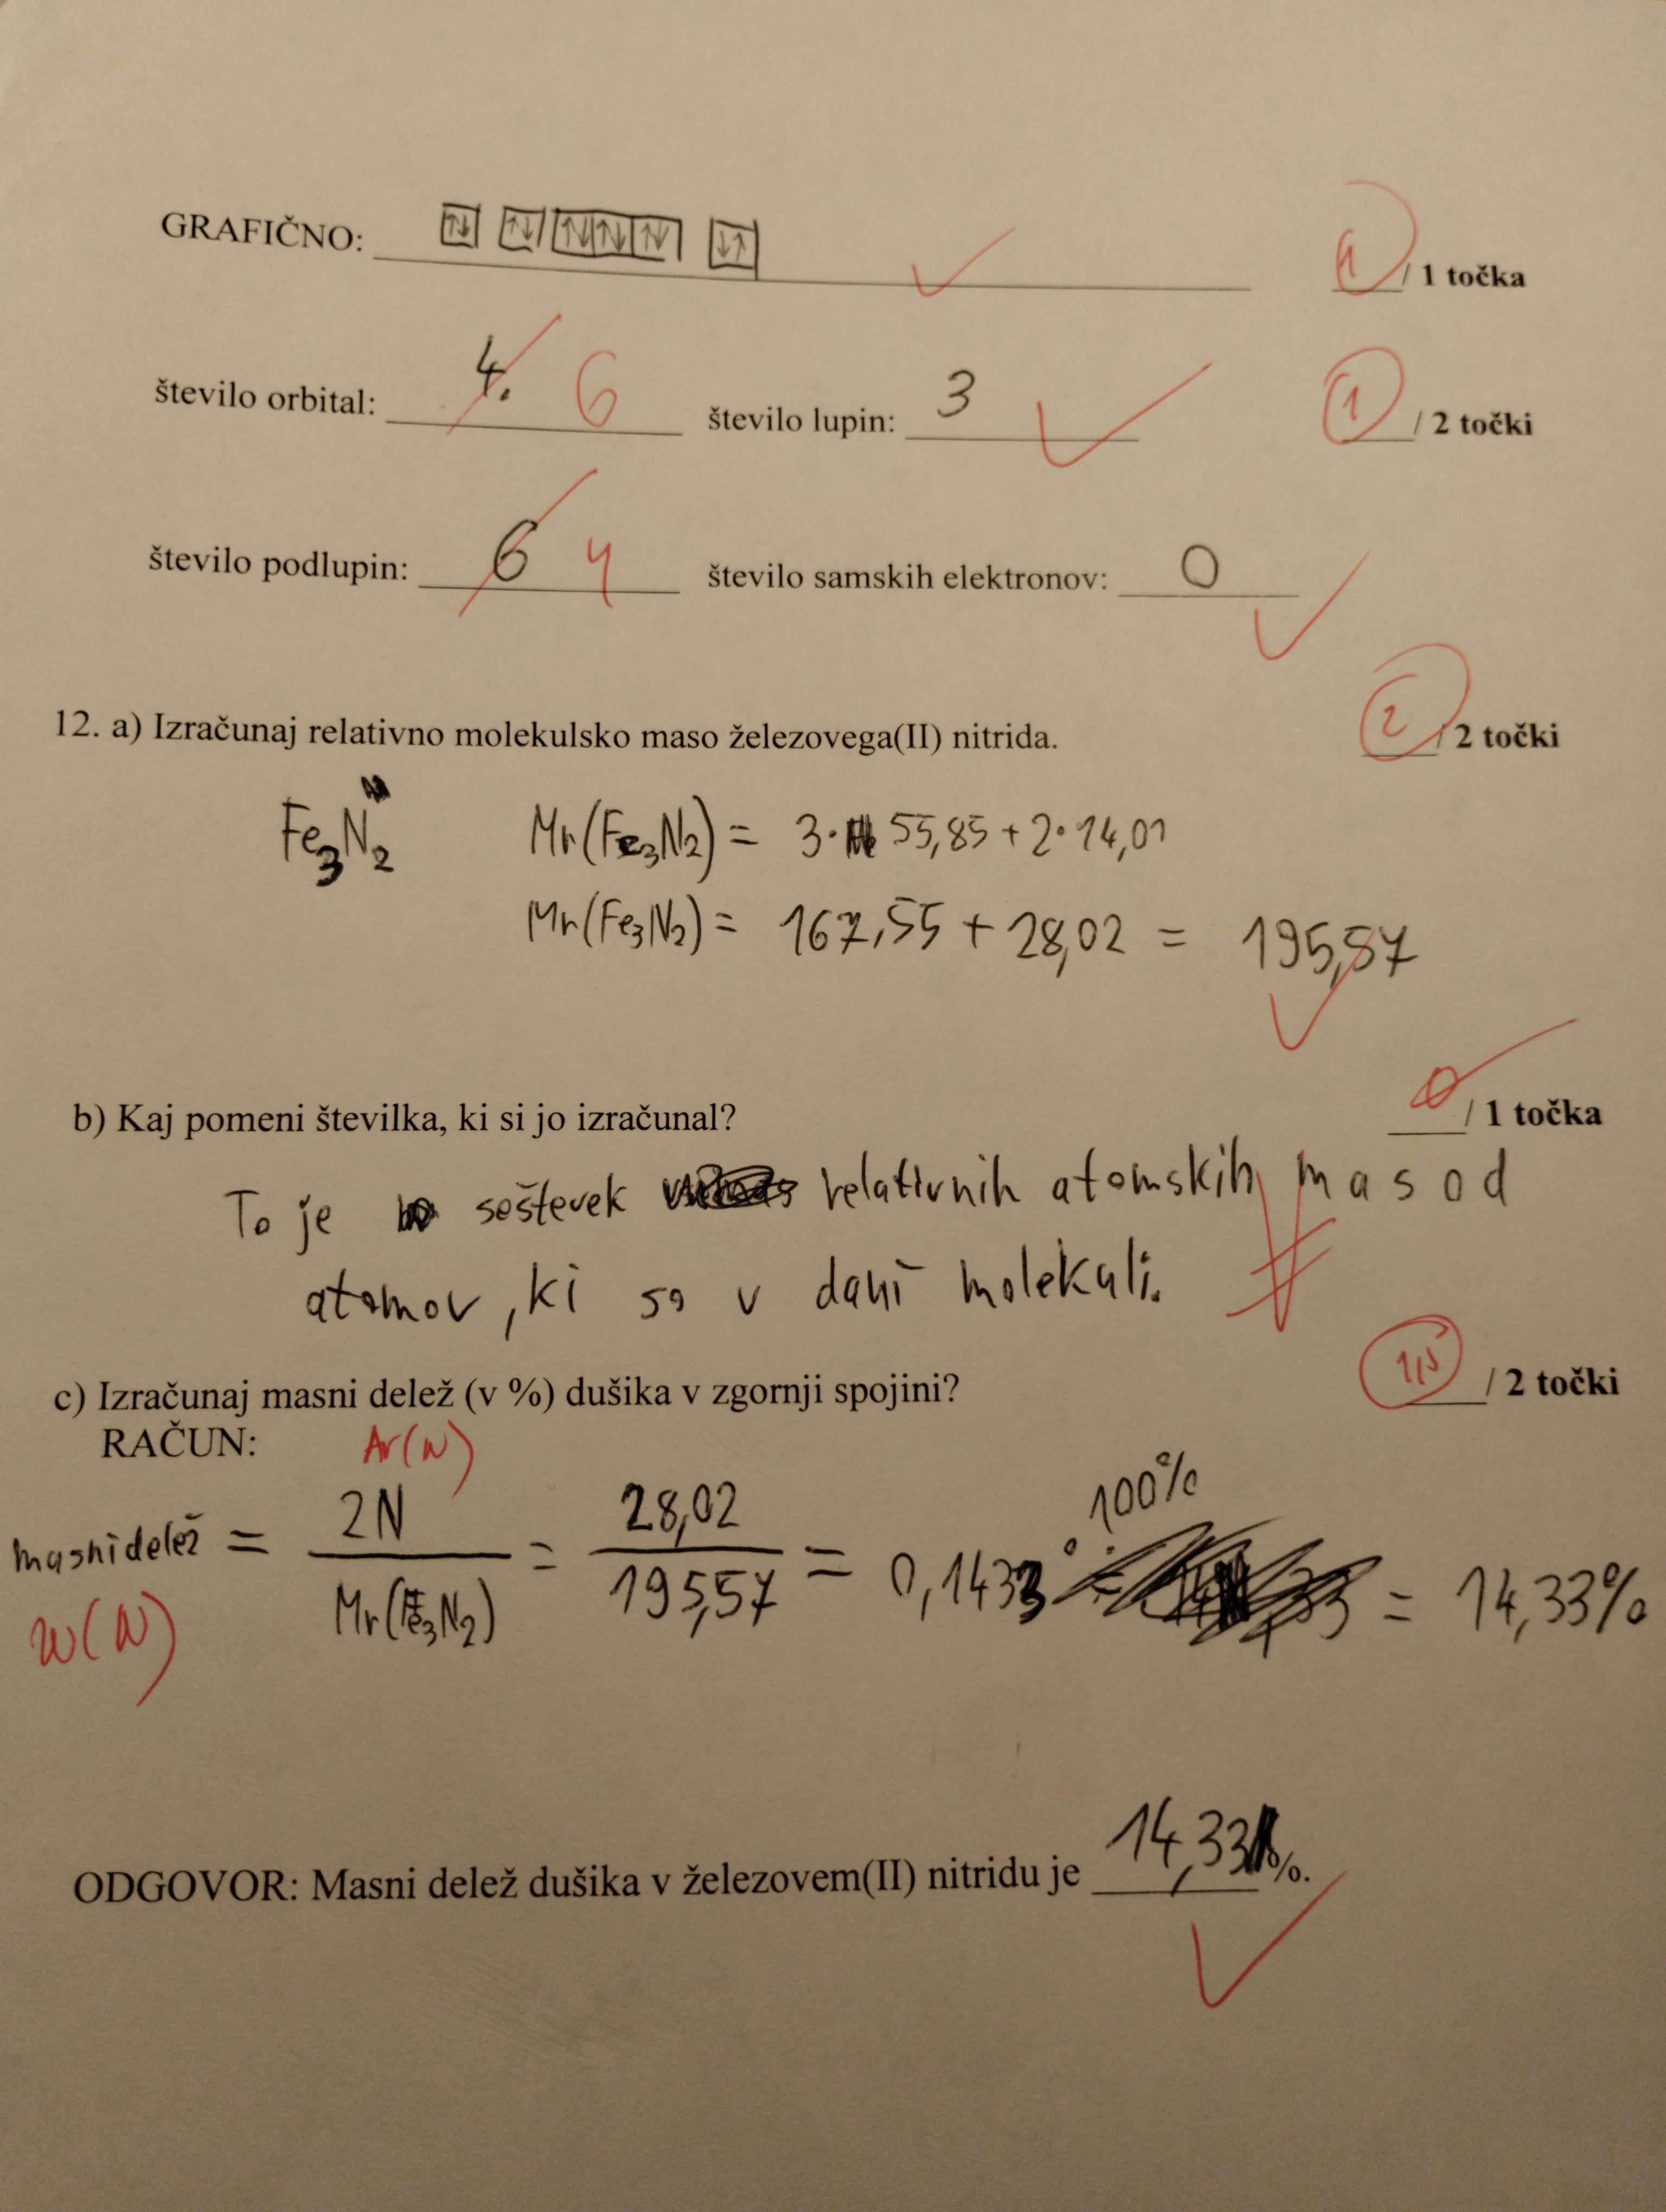 GRAFIČNO: ↑↓ ↑↓ ↑↓ ↑↓ ↑↓ ↓↑ 1 / 1 točka
število orbital: 4. 6 število lupin: 3 1 / 2 točki
število podlupin: 6 4 število samskih elektronov: 0
12. a) Izračunaj relativno molekulsko maso železovega(II) nitrida. 2 / 2 točki
Fe3N2 Mr(Fe3N2) = 3· 55,85 + 2·14,01
Mr(Fe3N2) = 167,55 + 28,02 = 195,57
b) Kaj pomeni številka, ki si jo izračunal? 0 / 1 točka
To je seštevek relativnih atomskih mas od
atomov, ki so v dani molekuli.
c) Izračunaj masni delež (v %) dušika v zgornji spojini? 1,5 / 2 točki
RAČUN: Ar(N)
masni delež = 2N / Mr(Fe3N2) = 28,02 / 195,57 = 0,1433 · 100% = 14,33%
w(N)
ODGOVOR: Masni delež dušika v železovem(II) nitridu je 14,33%.